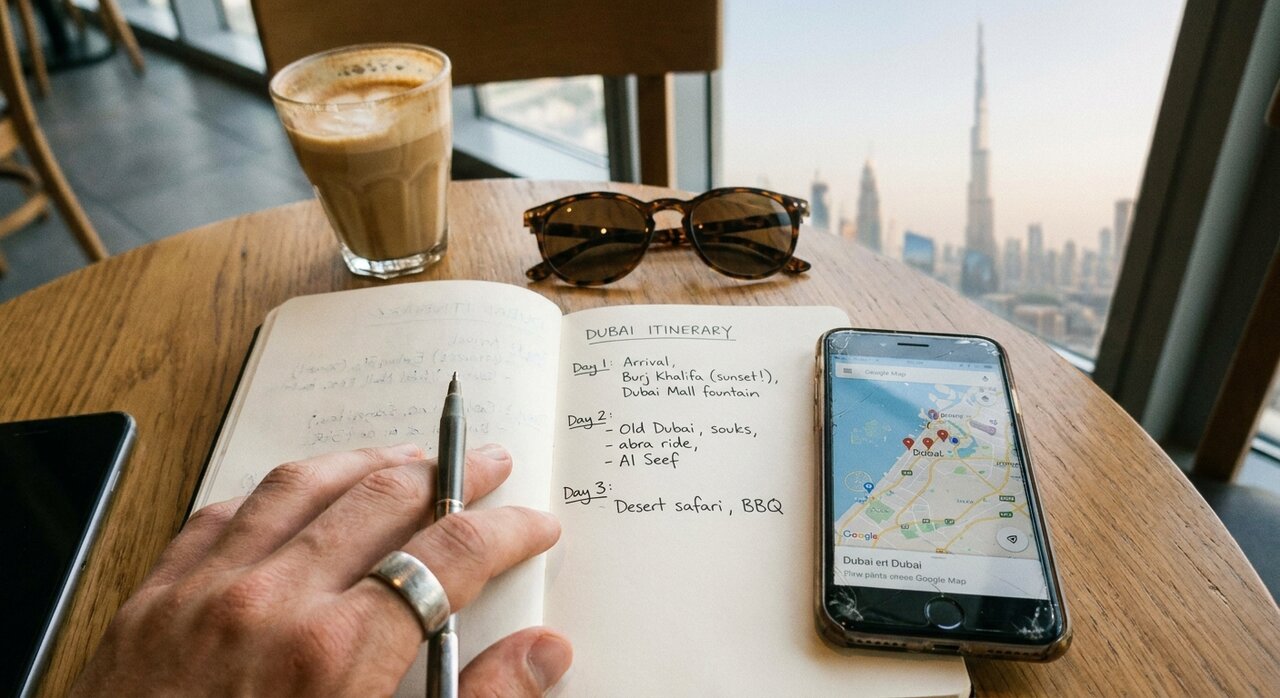 DUBAI ITINERARY
Day 1: Arrival,
Burj Khalifa (sunset!),
Dubai Mall fountain
Day 2:
- Old Dubai, souks,
- abra ride,
- Al Seef
Day 3:
- Desert safari, BBQ
Google Map
Google
Dubai ert Dubai
Google Map